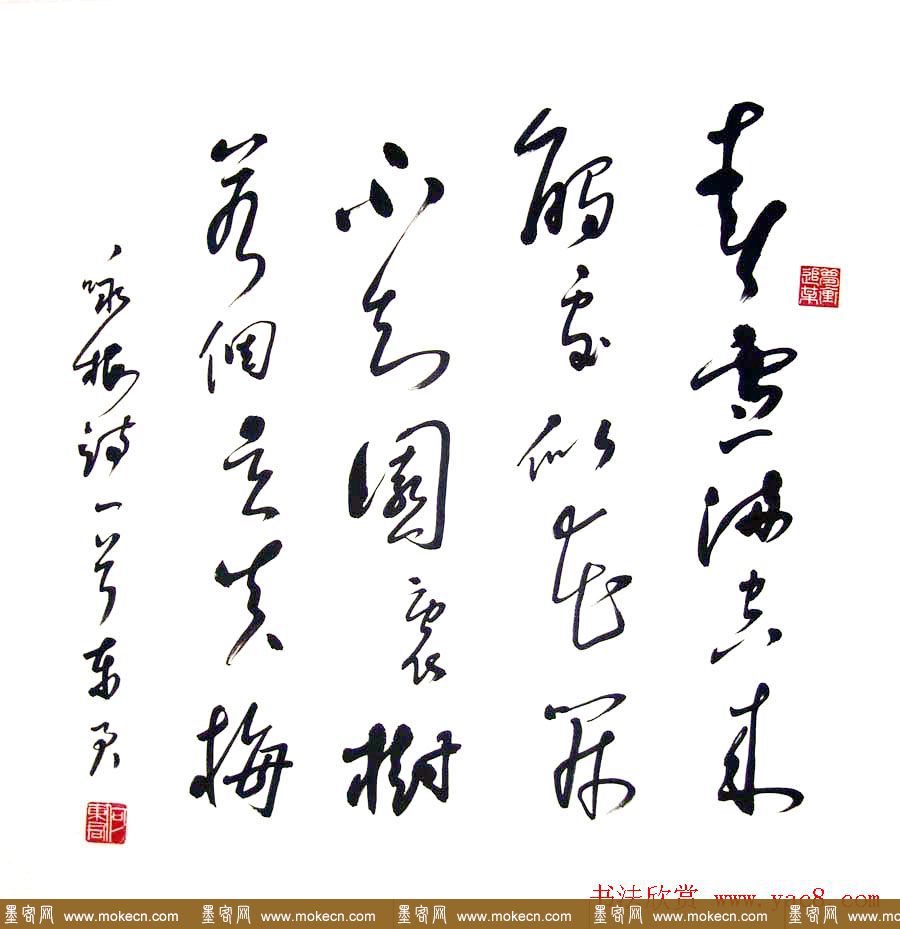 春雪满空来
觸處似花開
不知園裏樹
若個是真梅
咏梅詩一首 東
书法欣赏 www.yac8.com
墨客网 www.mokecn.com 墨客网 www.mokecn.com 墨客网 www.mokecn.com 墨客网 www.mokecn.com 墨客网 www